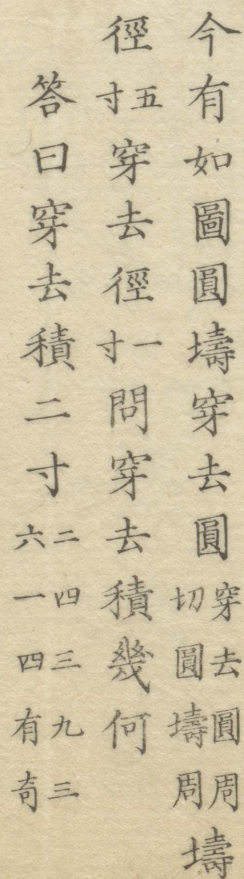 今有如圖圓壔穿去圓穿去圓周切圓壔周壔
徑五寸穿去徑一寸問穿去積幾何
答曰穿去積二寸二四三九三六一四有奇